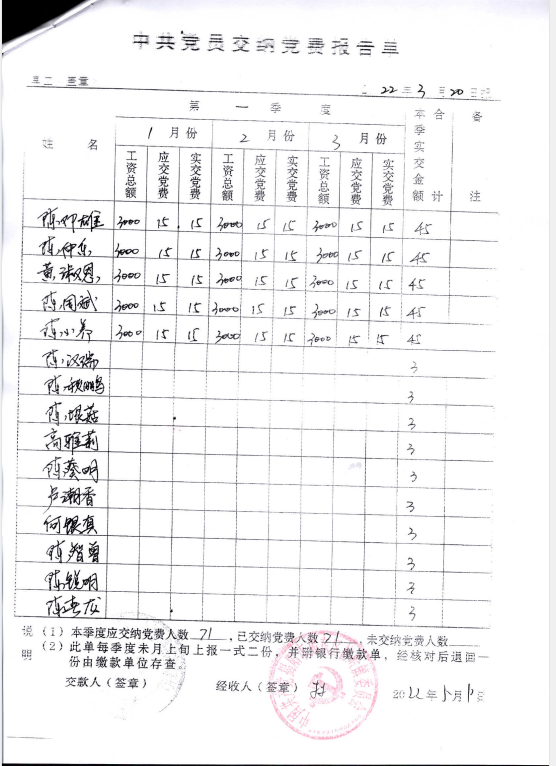 中共党员交纳党费报告单
22年3月20日
第一季度
姓名
1月份 2月份 3月份
本季实交金额 合计 备注
工资总额 应交党费 实交党费 工资总额 应交党费 实交党费 工资总额 应交党费 实交党费
3000 15 15 3000 15 15 3000 15 15 45
3000 15 15 3000 15 15 3000 15 15 45
黄淑恩 3000 15 15 3000 15 15 3000 15 15 45
陈周斌 3000 15 15 3000 15 15 3000 15 15 45
3000 15 15 3000 15 15 3000 15 15 45
陈汉瑞 3
3
3
高雅莉 3
陈葵明 3
卢潮香 3
何银真 3
陈智曾 3
陈锐明 3
3
说明
(1) 本季度应交纳党费人数 71 ,已交纳党费人数 71 ,未交纳党费人数
(2) 此单每季度末月上旬上报一式二份,并附银行缴款单,经核对后退回一
份由缴款单位存查。
交款人(签章) 经收人(签章) 2022年